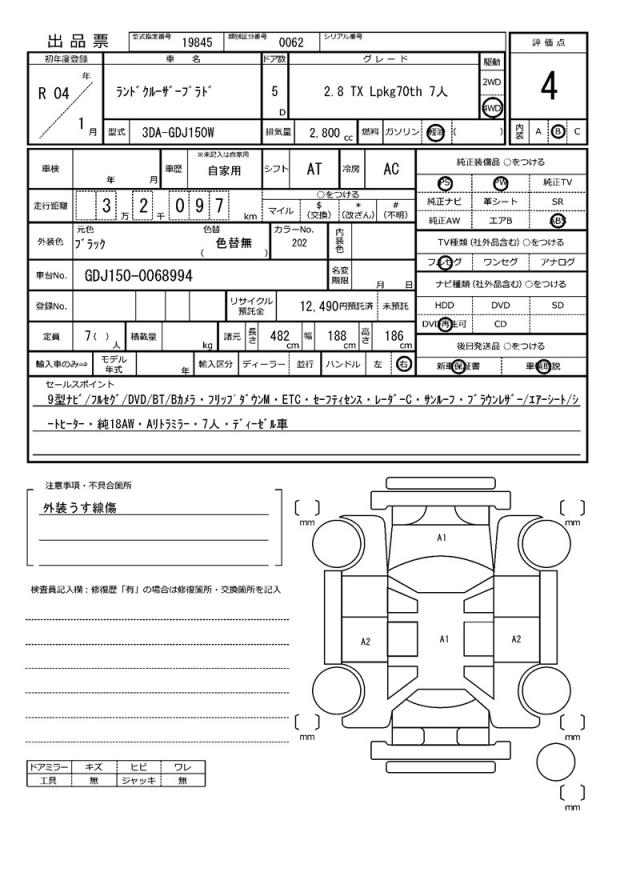 出 品 票 型式指定番号 19845 類別区分番号 0062 シリアル番号
評 価 点
初年度登録 車 名 ドア数 グ レ ー ド 駆動
R 04 年 ﾗﾝﾄﾞｸﾙｰｻﾞｰﾌﾟﾗﾄﾞ 5 D 2.8 TX Lpkg70th 7人 2WD 4WD
4
1 月 型式 3DA-GDJ150W 排気量 2,800 cc 燃料 ガソリン 軽油 ( ) 内装 A B C
車検 年 月 車歴 ※未記入は自家用 自家用 シフト AT 冷房 AC
純正装備品 ○をつける
PS PW 純正TV
走行距離 3 万 2 千 0 9 7 km ○をつける
マイル $ (交換) * (改ざん) # (不明)
純正ナビ 革シート SR
純正AW エアB ABS
外装色 元色 ﾌﾞﾗｯｸ 色替 ( 色替無 ) カラーNo. 202 内装色
TV種類 (社外品含む) ○をつける
フルセグ ワンセグ アナログ
車台No. GDJ150-0068994 名変期限 月 日
ナビ種類 (社外品含む) ○をつける
登録No. リサイクル預託金 12,490円預託済 未預託
HDD DVD SD
DVD再生可 CD
定員 7( ) 人 積載量 kg 諸元 長さ 482 cm 幅 188 cm 高さ 186 cm
後日発送品 ○をつける
輸入車のみ⇒ モデル年式 年 輸入区分 ディーラー 並行 ハンドル 左 右
新車保証書 車輌取説
セールスポイント
9型ﾅﾋﾞ/ﾌﾙｾｸﾞ/DVD/BT/Bｶﾒﾗ・ﾌﾘｯﾌﾟﾀﾞｳﾝM・ETC・ｾｰﾌﾃｨｾﾝｽ・ﾚｰﾀﾞｰC・ｻﾝﾙｰﾌ・ﾌﾞﾗｳﾝﾚｻﾞｰ/ｴｱｰｼｰﾄ/ｼ
ｰﾄﾋｰﾀｰ・純18AW・Aﾘﾄﾗﾐﾗｰ・7人・ﾃﾞｨｰｾﾞﾙ車
注意事項・不具合箇所
外装うす線傷
検査員記入欄：修復歴「有」の場合は修復箇所・交換箇所を記入
mm mm
A1
A2 A1 A2
mm mm
mm
ドアミラー キズ ヒビ ワレ
工具 無 ジャッキ 無